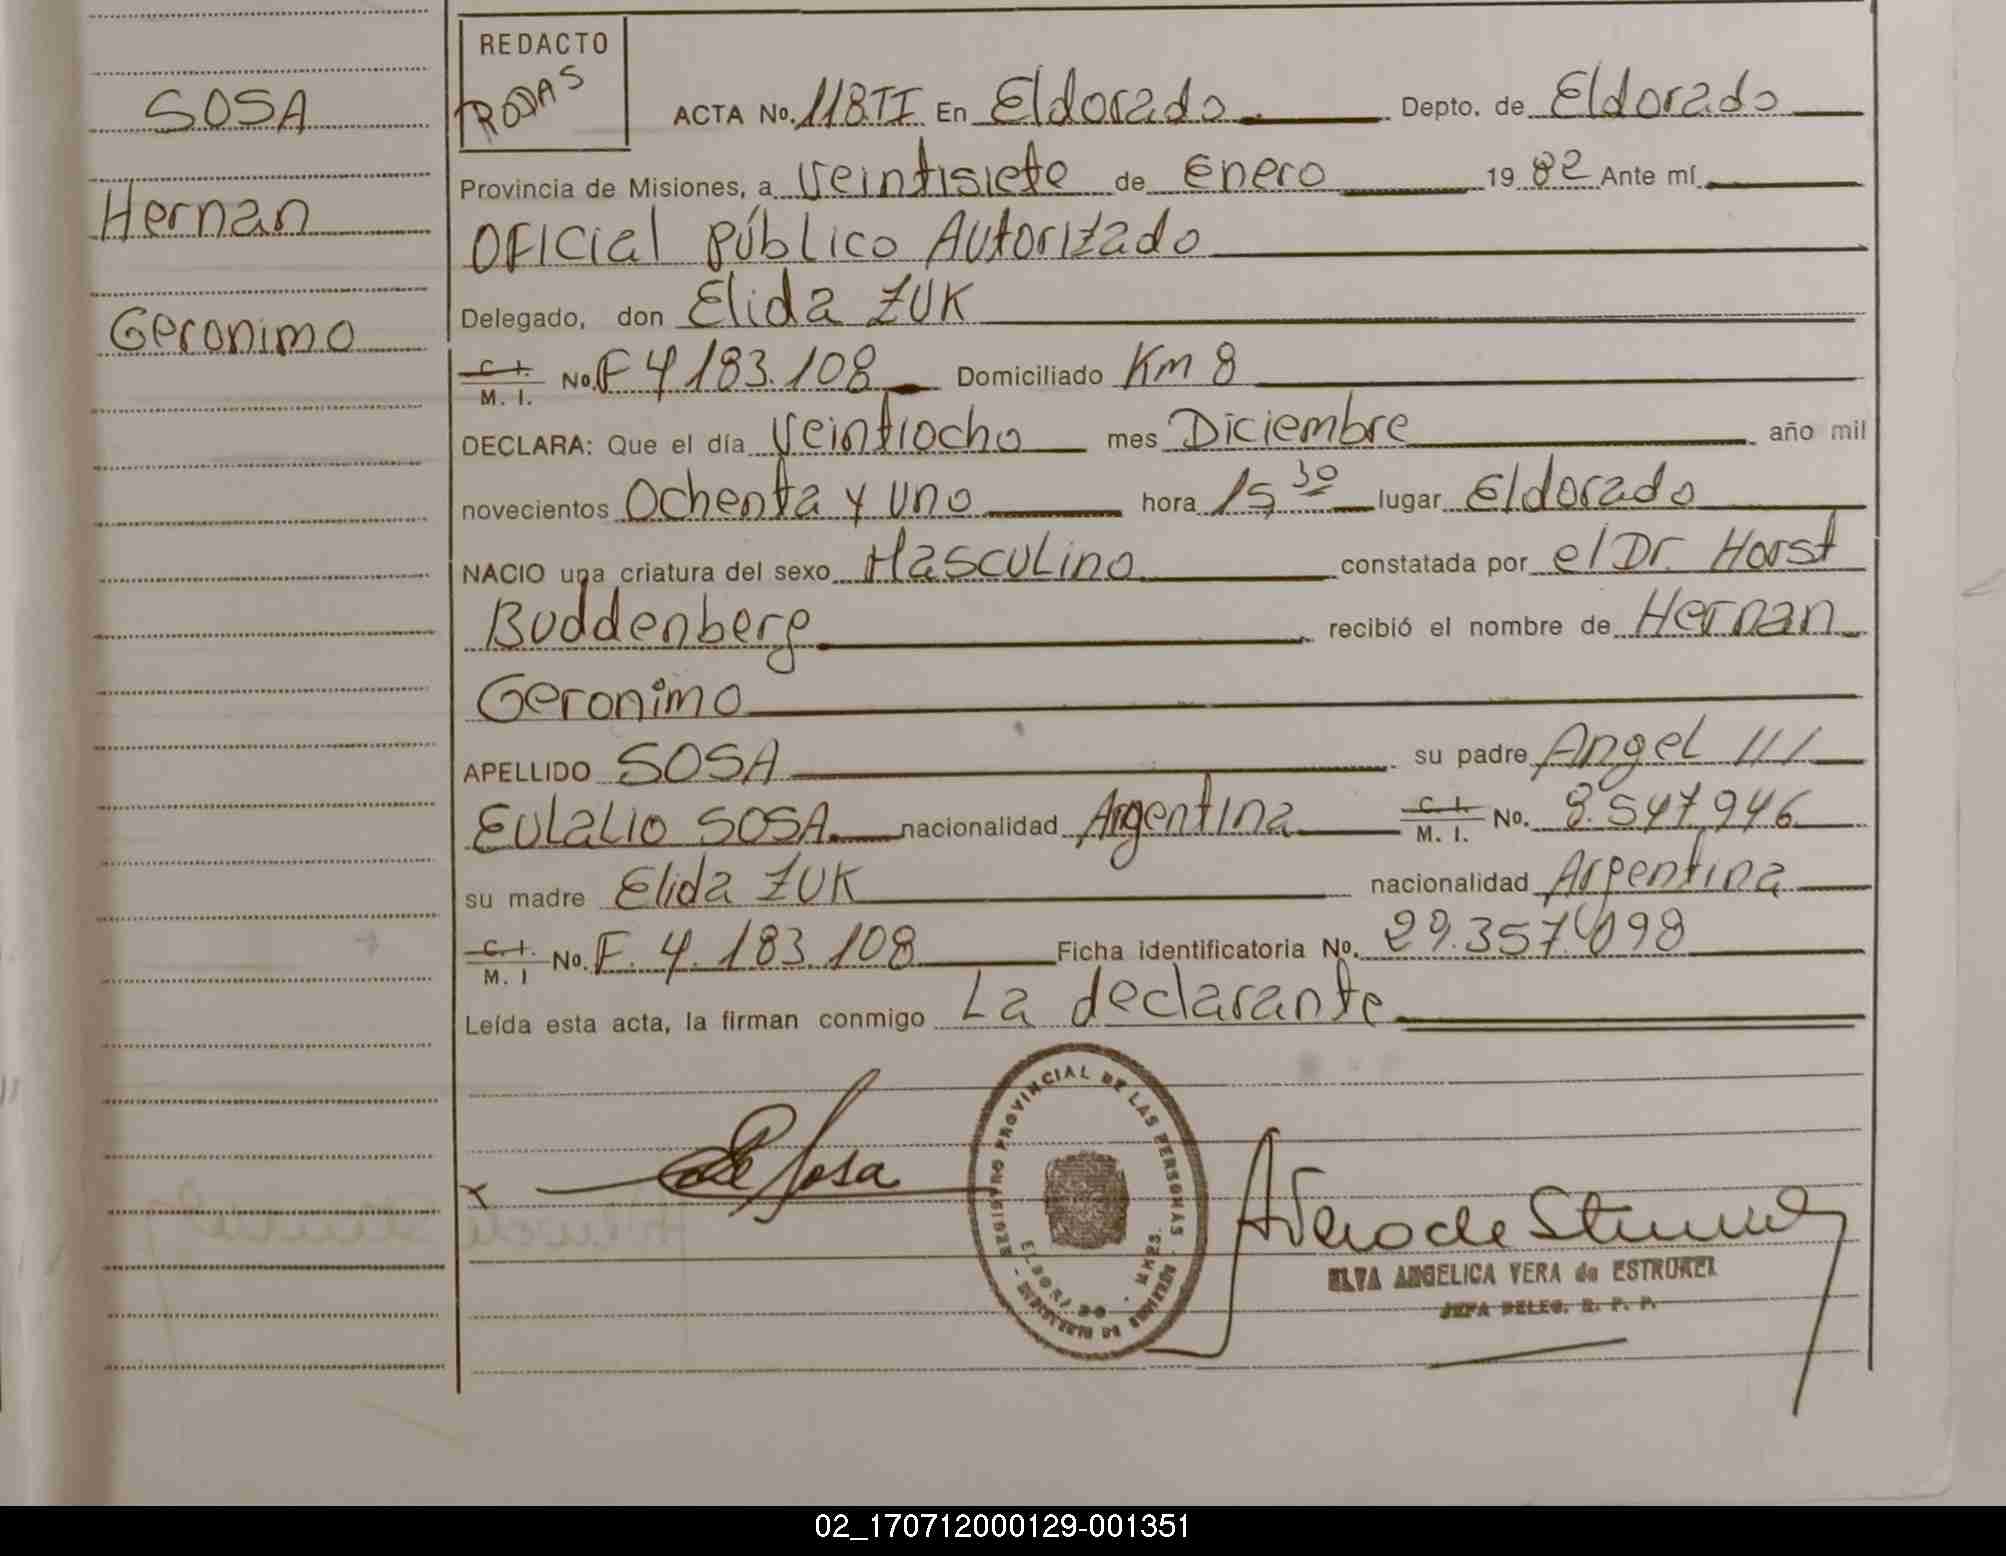 SOSA
Hernan
Geronimo
REDACTO
RODAS
ACTA No. 118TI En Eldorado Depto. de Eldorado
Provincia de Misiones, a veintisiete de Enero 1982 Ante mí
Oficial público Autorizado
Delegado, don Elida ZUK
C. I. M. I. No. F 4183.108 Domiciliado Km 8
DECLARA: Que el día veintiocho mes Diciembre año mil
novecientos Ochenta y uno hora 15 30 lugar Eldorado
NACIO una criatura del sexo Masculino constatada por el Dr. Horst
Buddenberg recibió el nombre de Hernan
Geronimo
APELLIDO SOSA su padre Angel ///
Eulalio SOSA nacionalidad Argentina C. I. M. I. No. 8.547.946
su madre Elida ZUK nacionalidad Argentina
C. I. M. I No. F. 4.183.108 Ficha identificatoria No. 29.357.098
Leída esta acta, la firman conmigo La declarante
REGISTRO PROVINCIAL DE LAS PERSONAS
ELDORADO - MNES.
x de Sosa
A Vera de
ELVA ANGELICA VERA de ESTRUKEL
JEFA DELEG. R. P. P.
02_170712000129-001351